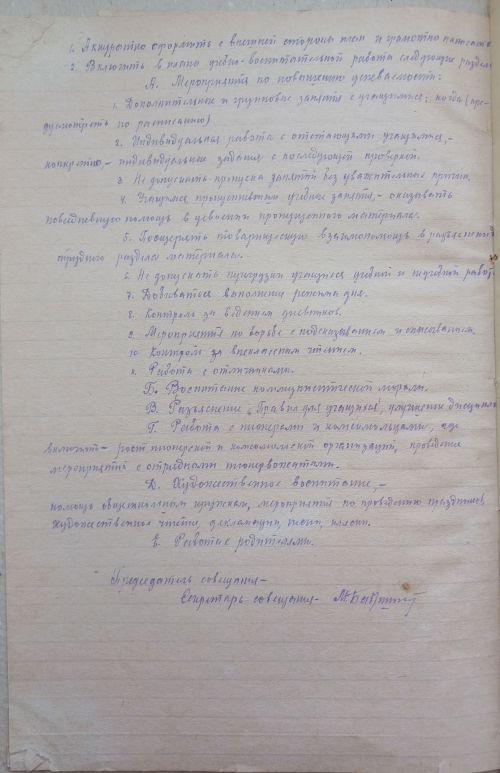 1. Аккуратно оформить с внешней стороны план и грамотно написано
2. Включить в планы учебно-воспитательной работы следующие разделы
А. Мероприятия по повышению успеваемости:
1. Дополнительные и групповые занятия с учащимися; когда (пре-
дусмотреть по расписанию)
2. Индивидуальная работа с отстающими учащимися,-
конкретно,- индивидуальные задания с последующей проверкой.
3. Не допускать пропуска занятий без уважительных причин.
4. Учащимся пропустившим учебные занятия,- оказывать
повседневную помощь в усвоении пропущенного материала.
5. Поощерять товарищескую взаимопомощь в разъяснении
трудного раздела материала.
6. Не допускать перегрузки учащихся учебной и внеучебной работ
7. Добиваться выполнения режима дня.
8. Контроль за ведением дневников.
9. Мероприятия по борьбе с подсказыванием и списыванием.
10. Контроль за внеклассным чтением.
11. Работа с отличниками.
Б. Воспитание коммунистической морали.
В. Разъяснение "Правил для учащихся", улучшение дисциплин
Г. Работа с пионерами и комсомольцами, где
включить - рост пионерской и комсомольской организаций, проведение
мероприятий с отрядными пионервожатыми.
Д. Художественное воспитание -
помощь общешкольным кружкам, мероприятия по проведению праздников,
художественное чтение, декламации, песни, пляски.
Е. Работа с родителями.
Председатель совещания-
Секретарь совещания-